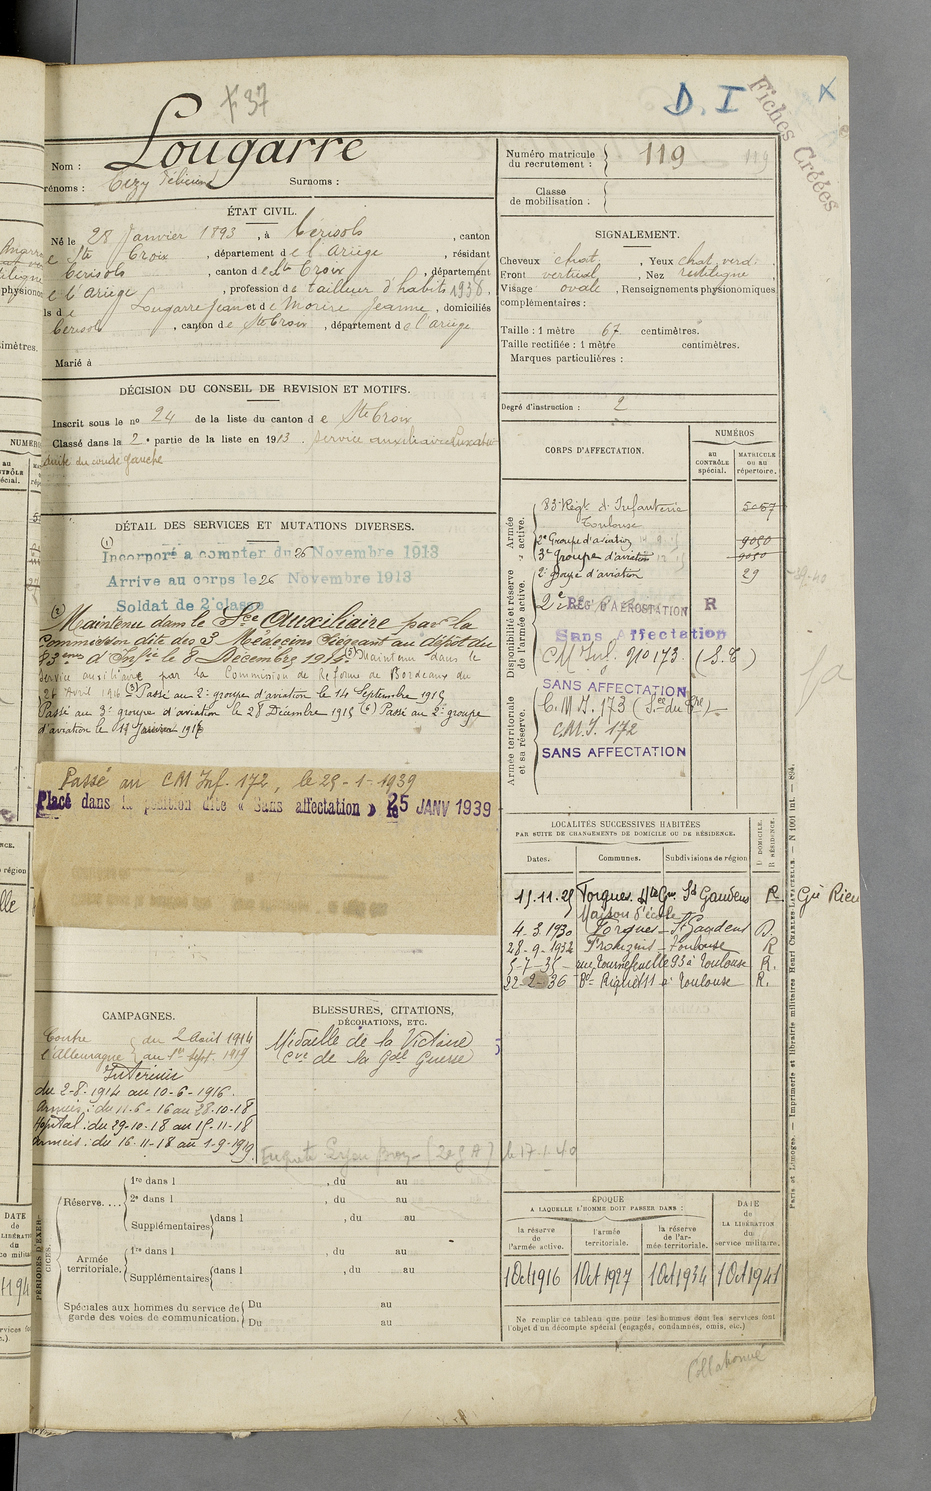 F 37
D. I
X
Fiches Créées
Nom : Lougarre
rénoms : Cizy Félicien Surnoms :
Numéro matricule du recrutement : 119 119
Classe de mobilisation :
ÉTAT CIVIL.
Né le 28 Janvier 1893, à Cérisols, canton
e Ste Croix, département de l'Ariège, résidant
Cerisols, canton de Ste Croix, département
e l'Ariège, profession de tailleur d'habits 1938.
ls de Lougarre Jean et de Morère Jeanne, domiciliés
Cerisols, canton de Ste Croix, département de l'ariège
Marié à
SIGNALEMENT.
Cheveux chat., Yeux chat. verd.
Front vertical, Nez rectiligne
Visage ovale, Renseignements physionomiques
complémentaires :
Taille : 1 mètre 67 centimètres.
Taille rectifiée : 1 mètre centimètres.
Marques particulières :
Degré d'instruction : 2
DÉCISION DU CONSEIL DE REVISION ET MOTIFS.
Inscrit sous le no 24 de la liste du canton de Ste Croix
Classé dans la 2e partie de la liste en 1913. Service auxiliaire
du coude gauche
DÉTAIL DES SERVICES ET MUTATIONS DIVERSES.
(1) Incorporé a compter du 26 Novembre 1913
Arrive au corps le 26 Novembre 1913
Soldat de 2e classe
(2) Maintenu dans le Sce Auxiliaire par la
Commission dite des 3 Médecins siégeant au dépôt du
83ème d'Infie le 8 Décembre 1914 (5) Maintenu dans le
service auxiliaire par la Commission de Réforme de Bordeaux du
26 Avril 1916 (3) Passé au 2e groupe d'aviation le 14 Septembre 1915
Passé au 3e groupe d'aviation le 28 Décembre 1915 (6) Passé au 2e groupe
d'aviation le 17 Janvier 1917
Passé au CM Inf. 172, le 25-1-1939
Placé dans la position dite « Sans affectation » le 25 JANV 1939
CORPS D'AFFECTATION.
NUMÉROS
au CONTRÔLE spécial.
MATRICULE OU AU répertoire.
Armée active.
83e Régt d'Infanterie 5067
Toulouse
2e Groupe d'aviation 9050
3e Groupe d'aviation 9050
Disponibilité et réserve de l'armée active.
2e groupe d'aviation 29
2e RÉGt D'AÉROSTATION R
Sans Affectation
CM Inf. no 173 (S.E)
Armée territoriale et sa réserve.
SANS AFFECTATION
C.M I. 173
C.M.I. 172
SANS AFFECTATION
LOCALITÉS SUCCESSIVES HABITÉES
PAR SUITE DE CHANGEMENTS DE DOMICILE OU DE RÉSIDENCE.
Dates. Communes. Subdivisions de région D. DOMICILE. R. RÉSIDENCE.
Forgues. Hte Gne St Gaudens R.
Maison d'école
4.3.1930 Forgues - St Gaudens D.
28-9-1932 Toulouse R
5-7-35 - rue Tournefeuille 93 à Toulouse R.
22-2-36 à Toulouse R.
CAMPAGNES.
Contre l'Allemagne du 2 Août 1914 au 1er Sept. 1919
Intérieur
du 2-8-1914 au 10-6-1916.
Armées : du 11-6-16 au 28-10-18
Hopital : du 29-10-18 au 15-11-18
Armées : du 16-11-18 au 1-9-1919.
BLESSURES, CITATIONS,
DÉCORATIONS, ETC.
Médaille de la Victoire
Cve de la Gde Guerre
le 17-1-40
PÉRIODES D'EXERCICES.
Réserve....
1re dans l , du au
2e dans l , du au
Supplémentaires dans l , du au
Armée territoriale.
1re dans l , du au
Supplémentaires dans l , du au
Spéciales aux hommes du service de garde des voies de communication.
Du au
Du au
ÉPOQUE
A LAQUELLE L'HOMME DOIT PASSER DANS :
la réserve de l'armée active.
l'armée territoriale.
la réserve de l'armée territoriale.
DATE de LA LIBÉRATION du service militaire.
1 Oct 1916 1 Oct 1927 1 Oct 1934 1 Oct 1941
Ne remplir ce tableau que pour les hommes dont les services font
l'objet d'un décompte spécial (engagés, condamnés, omis, etc.)
Paris et Limoges. — Imprimerie et librairie militaires Henri CHARLES-LAVAUZELLE. — N 1001 int. — 894.
Collationné